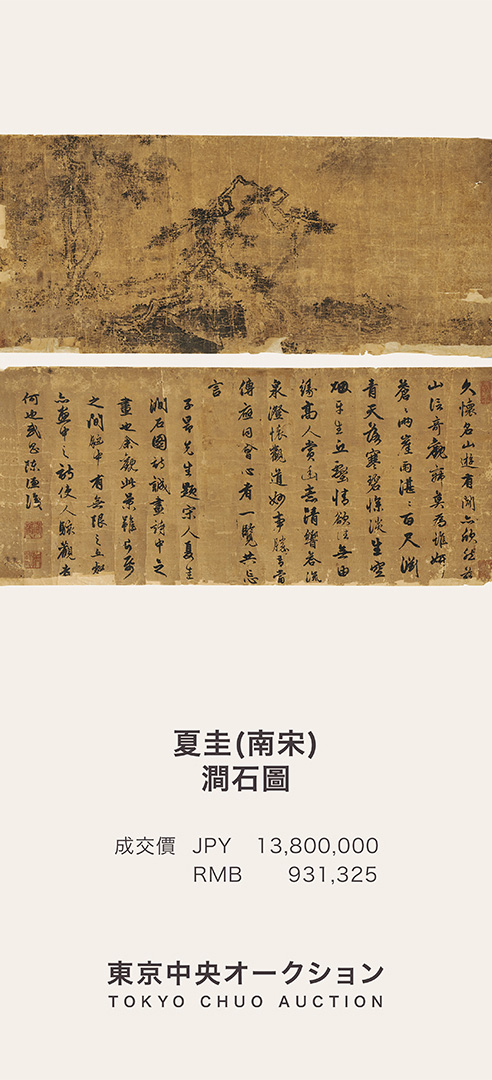 久懷名山遊有聞亦欣然茲
山信奇觀辭莫為
蒼蒼兩崖雨湛湛百尺淵
青天落寒碧慘淡生空
烟平生丘壑情欲往無由
緣高人賞幽意清響答流
泉澄懷觀道妙事勝
傳應同會心者一覽共忘
言
子昂先生題宋人夏圭
澗石圖詩誠畫詩中之
畫也余觀此景難
之間中有無限之丘
亦畫中之詩使人觀者
何
夏圭(南宋)
澗石圖
成交價 JPY 13,800,000
RMB 931,325
東京中央オークション
TOKYO CHUO AUCTION